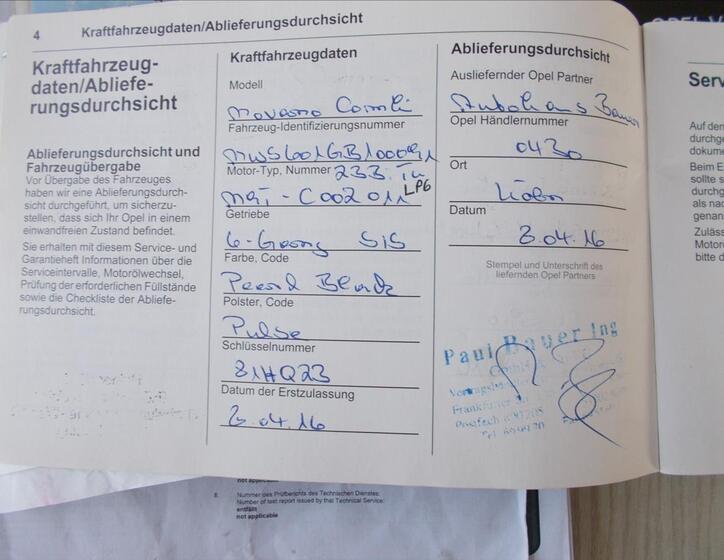 4 Kraftfahrzeugdaten/Ablieferungsdurchsicht
Kraftfahrzeug-
daten/Abliefe-
rungsdurchsicht
Ablieferungsdurchsicht und
Fahrzeugübergabe
Vor Übergabe des Fahrzeuges
haben wir eine Ablieferungsdurch-
sicht durchgeführt, um sicherzu-
stellen, dass sich Ihr Opel in einem
einwandfreien Zustand befindet.
Sie erhalten mit diesem Service- und
Garantieheft Informationen über die
Serviceintervalle, Motorölwechsel,
Prüfung der erforderlichen Füllstände
sowie die Checkliste der Abliefe-
rungsdurchsicht.
Kraftfahrzeugdaten
Modell
Movano Combi
Fahrzeug-Identifizierungsnummer
Motor-Typ, Nummer
LPG
Getriebe
6-Gang
Farbe, Code
Pearl Black
Polster, Code
Pulse
Schlüsselnummer
81HQ23
Datum der Erstzulassung
04.16
Ablieferungsdurchsicht
Ausliefernder Opel Partner
Autohaus Bauer
Opel Händlernummer
0430
Ort
Köln
Datum
04.16
Stempel und Unterschrift des
liefernden Opel Partners
Paul Bauer Ing
Serv
Auf den
durchge
dokume
Beim E
sollte s
durchg
als nac
genan
Zuläss
Motor
bitte d
not applicable
8. Nummer des Prüfberichts des Technischen Dienstes:
Number of test report issued by that Technical Service:
entfällt
not applicable